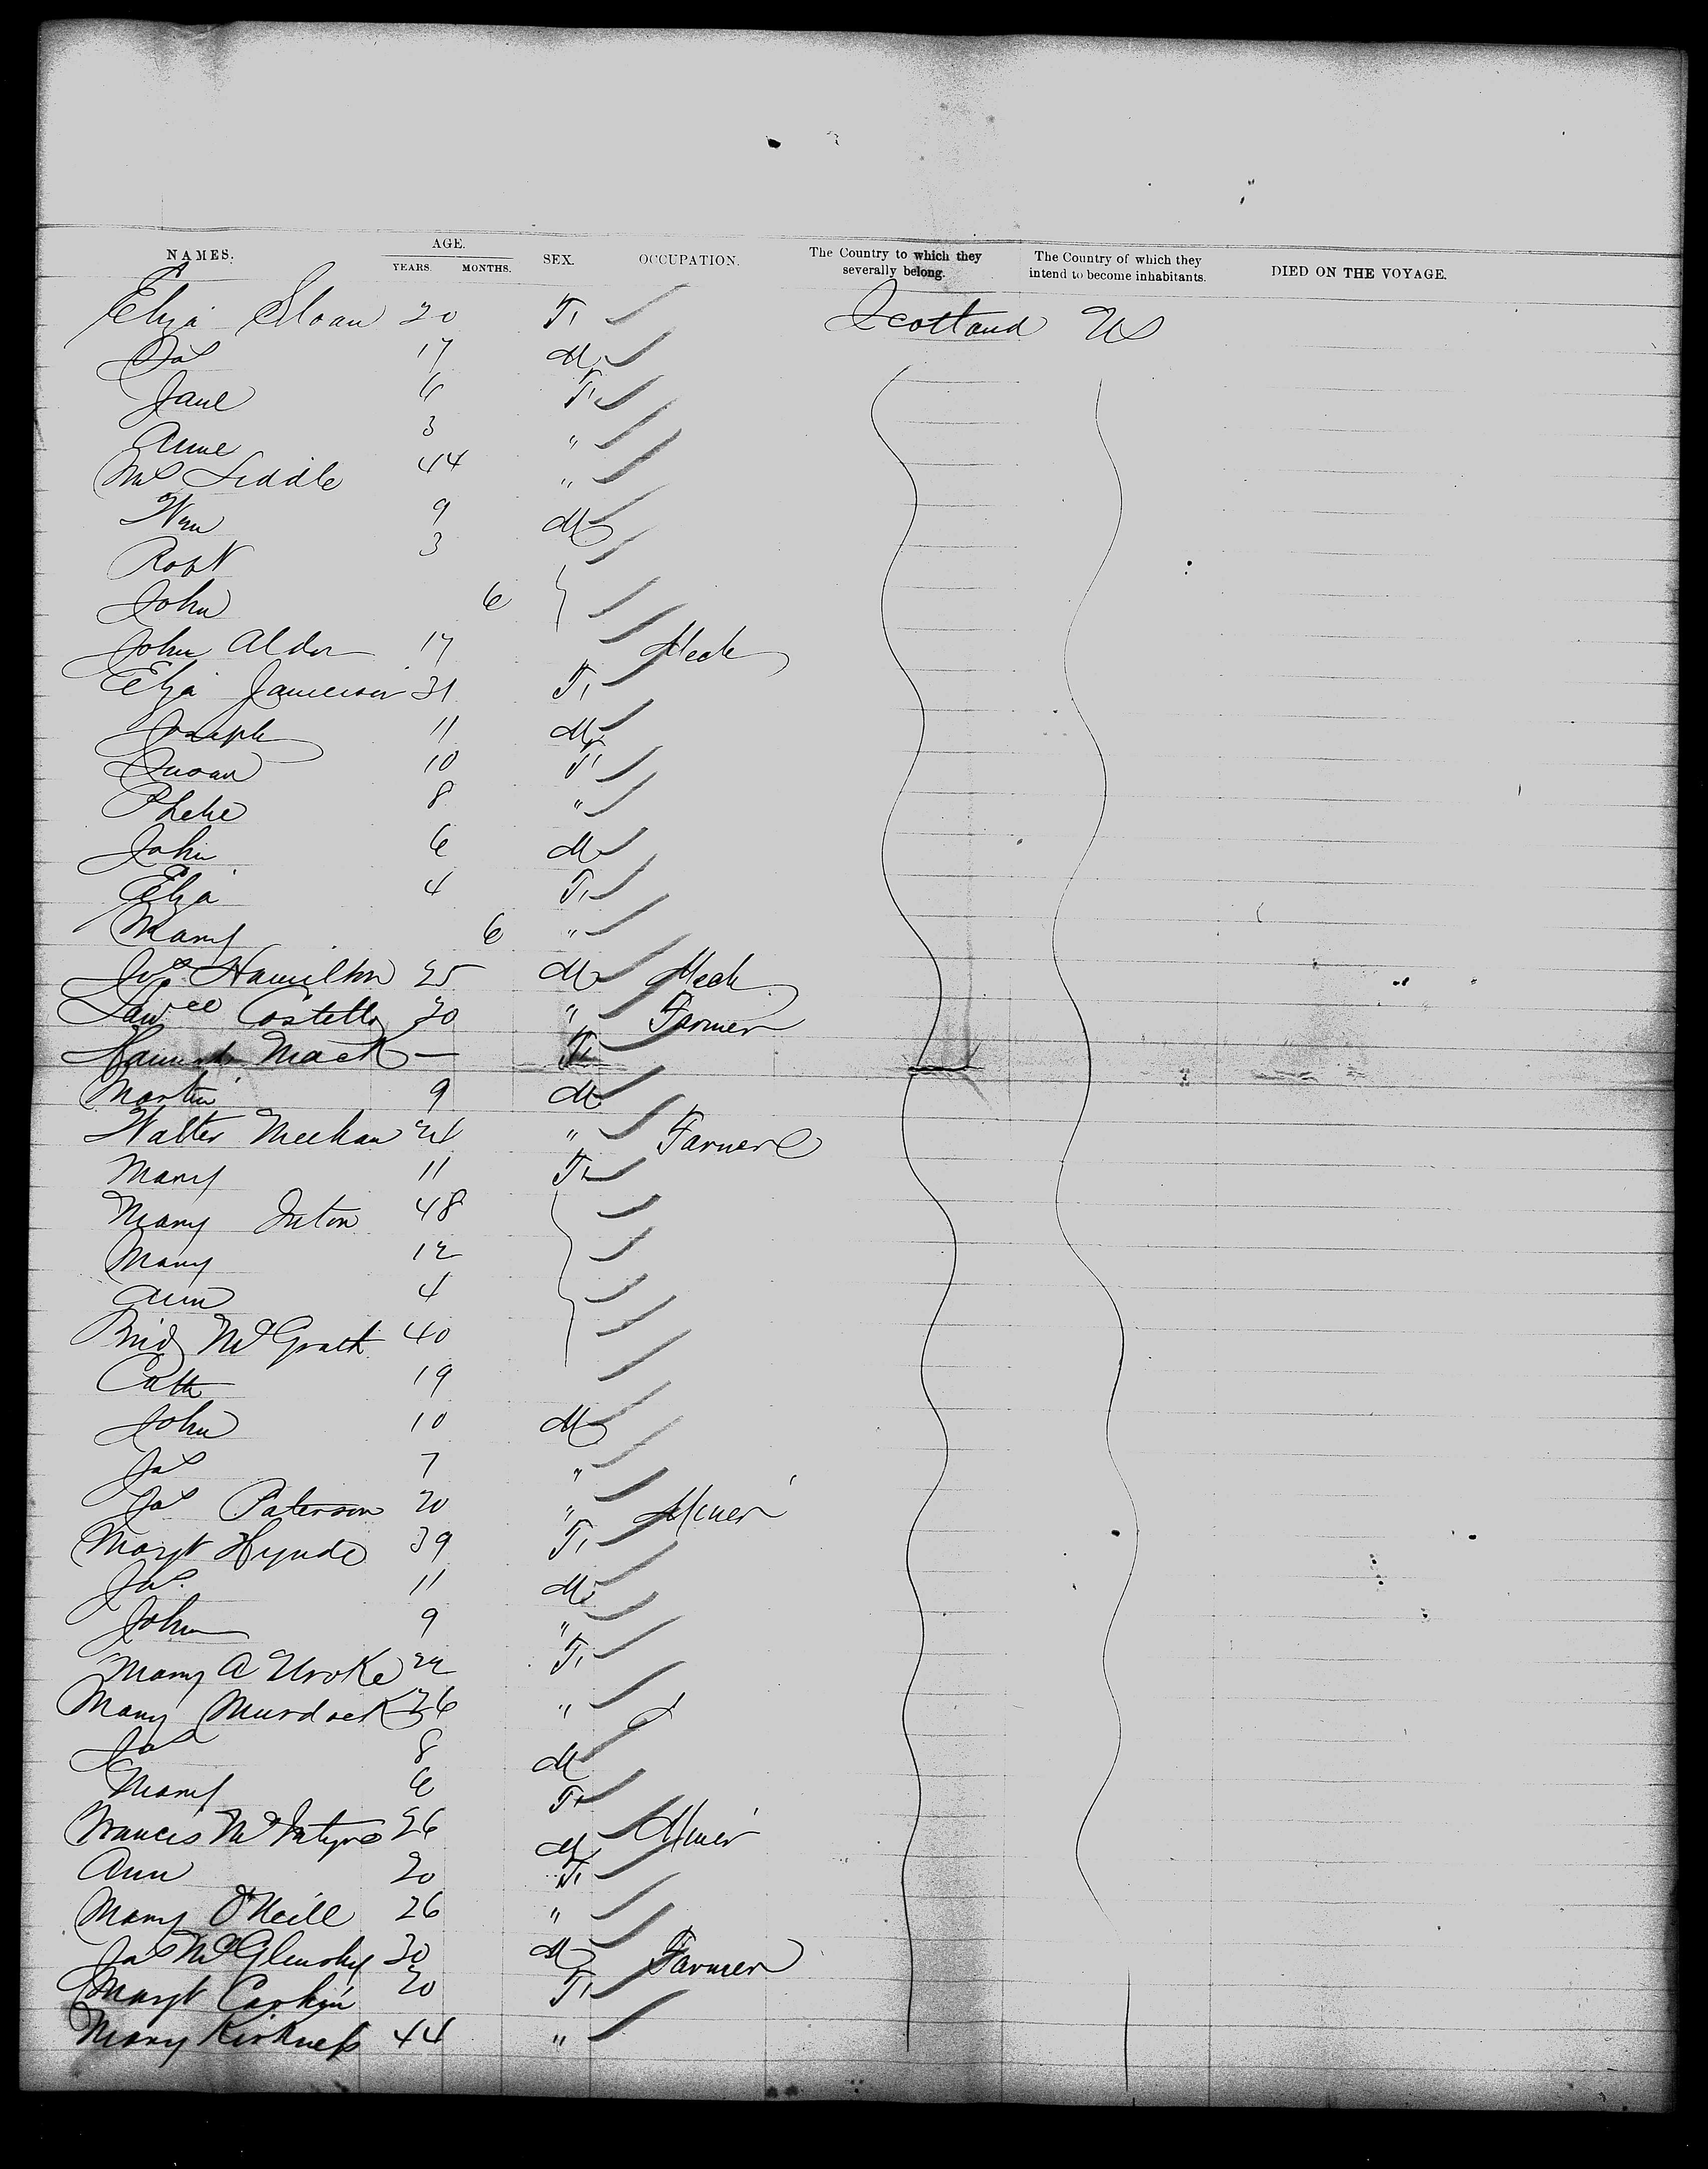 NAMES. AGE. YEARS. MONTHS. SEX. OCCUPATION. The Country to which they severally belong. The Country of which they intend to become inhabitants. DIED ON THE VOYAGE.
Eliza Sloan 20 F Scotland US
Jas 17 M
Jane 6 F
Anne 3 "
Mrs Liddle 44 "
Wm 9 M
Robt 3
John 6
John Alder 17 Mech
Eliza Jameson 31 F
Joseph 11 M
Susan 10 F
Phebe 8 "
John 6 M
Eliza 4 F
Mary 6 "
Jos Hamilton 25 M Mech
Lawce Costello 30 " Farmer
Hannah Mack — F
Martin 9 M
Walter Meehan 24 " Farmer
Mary 11 F
Mary Inton 48
Mary 12
Ann 4
Brid McGrath 40
Cath 19
John 10 M
Jas 7 "
Jas Paterson 20 " Miner
Margt Hynde 39 F
Jas. 11 M
John 9 "
Mary A 22 F
Mary Murdock 36 "
Jas 8 M
Mary 6 F
Francis McIntyre 26 M Miner
Ann 20 F
Mary O'Neill 26 "
Jas 30 M Farmer
Margt 20 F
Mary Kirkness 44 "